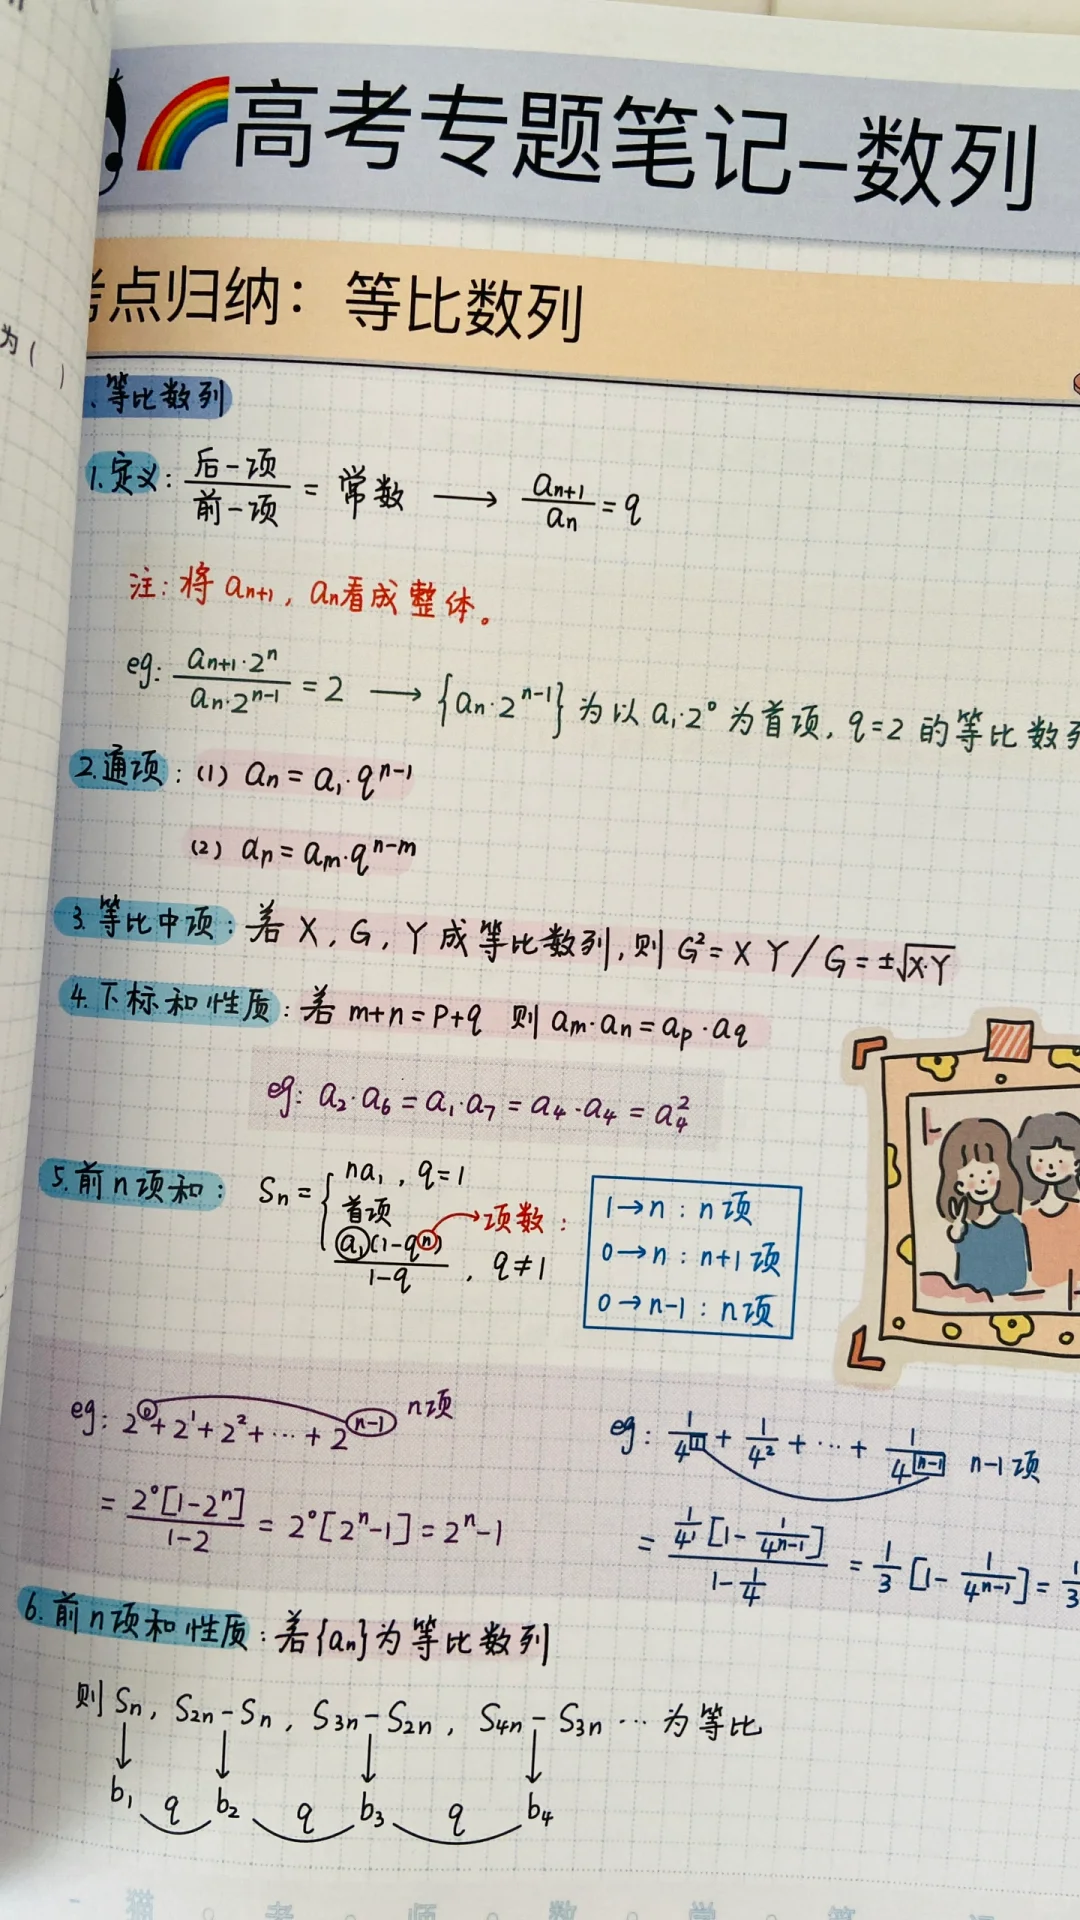 高考专题笔记-数列
考点归纳：等比数列
、等比数列
1.定义: 后一项/前一项 = 常数 ⟶ aₙ₊₁/aₙ = q
注: 将 aₙ₊₁, aₙ看成整体。
eg: (aₙ₊₁·2ⁿ)/(aₙ·2ⁿ⁻¹) = 2 ⟶ {aₙ·2ⁿ⁻¹} 为以 a₁·2⁰ 为首项, q=2 的等比数列
2.通项: (1) aₙ = a₁·qⁿ⁻¹
(2) aₙ = aₘ·qⁿ⁻ᵐ
3.等比中项: 若 X, G, Y 成等比数列, 则 G² = X Y / G = ±√(X·Y)
4.下标和性质: 若 m+n=P+q 则 aₘ·aₙ = aₚ·a_q
eg: a₂·a₆ = a₁·a₇ = a₄·a₄ = a₄²
5.前n项和: Sₙ = { na₁, q=1
首项
a₁(1-qⁿ)/(1-q), q≠1
项数:
1→n : n项
0→n : n+1项
0→n-1 : n项
eg: 2⁰+2¹+2²+…+2ⁿ⁻¹ n项
= 2⁰[1-2ⁿ]/(1-2) = 2⁰[2ⁿ-1] = 2ⁿ-1
eg: 1/4¹ + 1/4² + … + 1/4ⁿ⁻¹ n-1项
= (1/4¹[1-1/4ⁿ⁻¹])/(1-1/4) = 1/3[1-1/4ⁿ⁻¹] = 1/3
6.前n项和性质: 若{aₙ}为等比数列
则 Sₙ, S₂ₙ-Sₙ, S₃ₙ-S₂ₙ, S₄ₙ-S₃ₙ … 为等比
b₁ q b₂ q b₃ q b₄
为( )